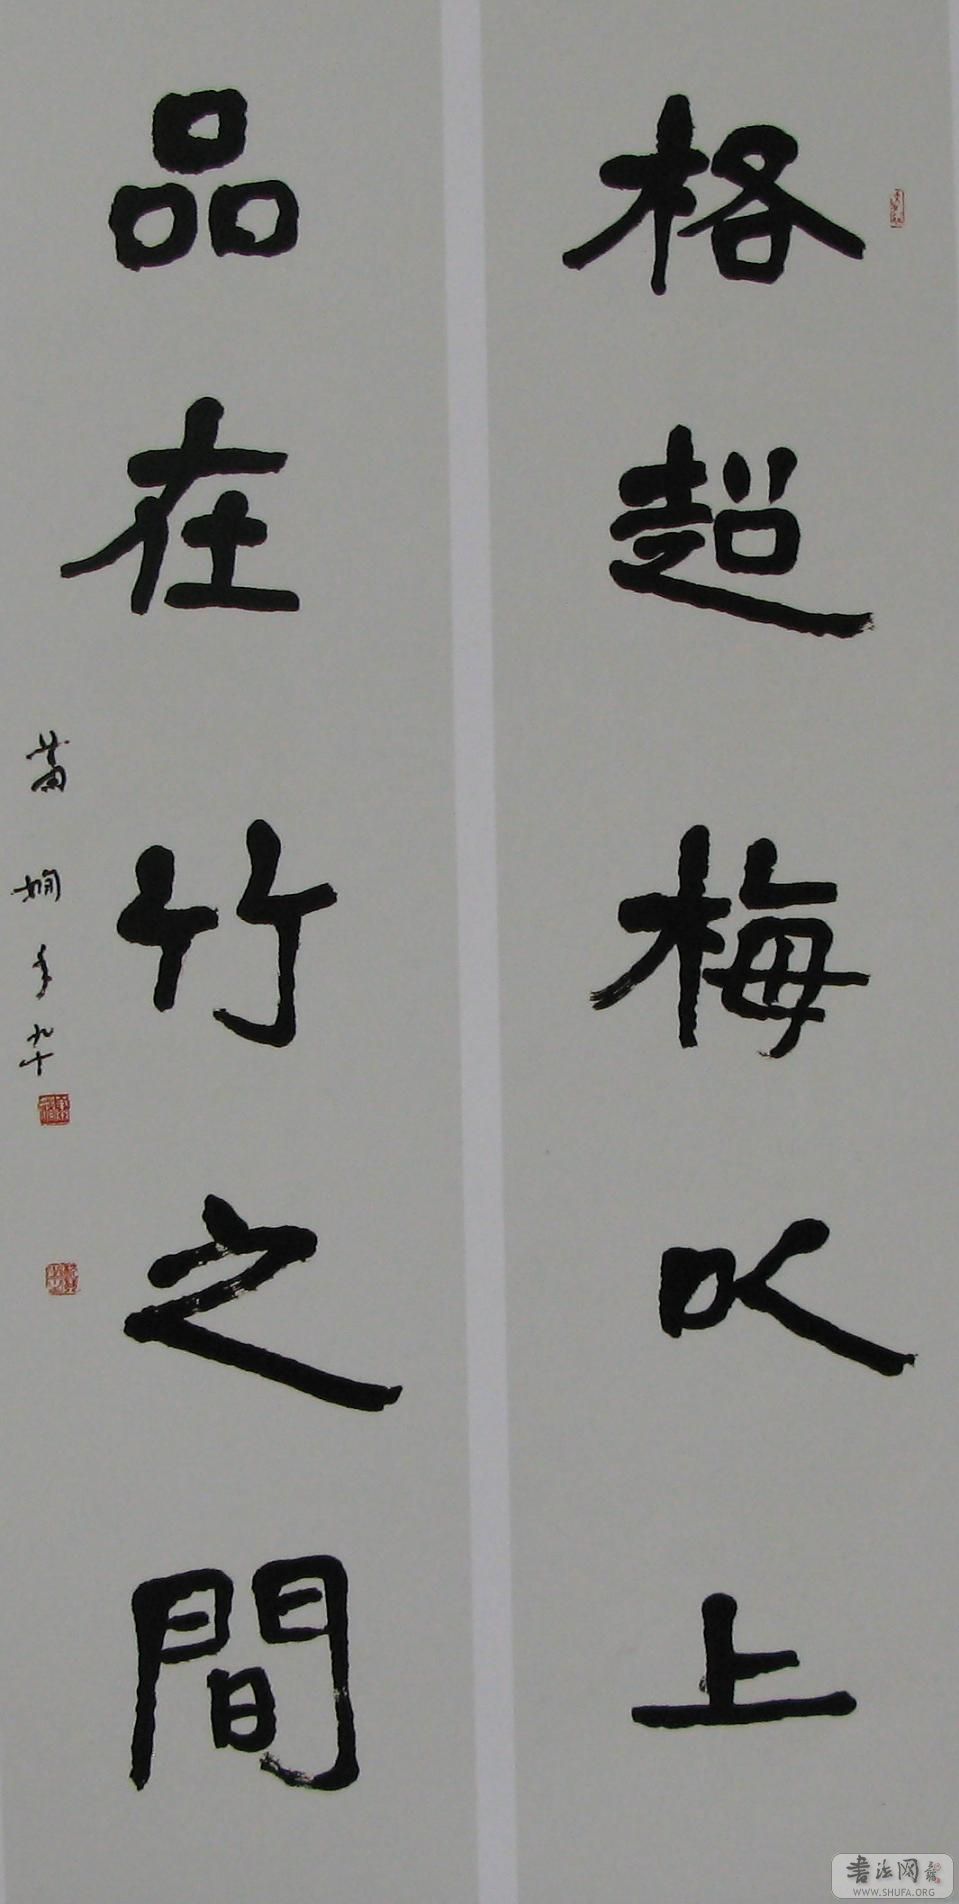 格超梅以上
品在竹之間
蕭嫻年九十
書法网
WWW.SHUFA.ORG